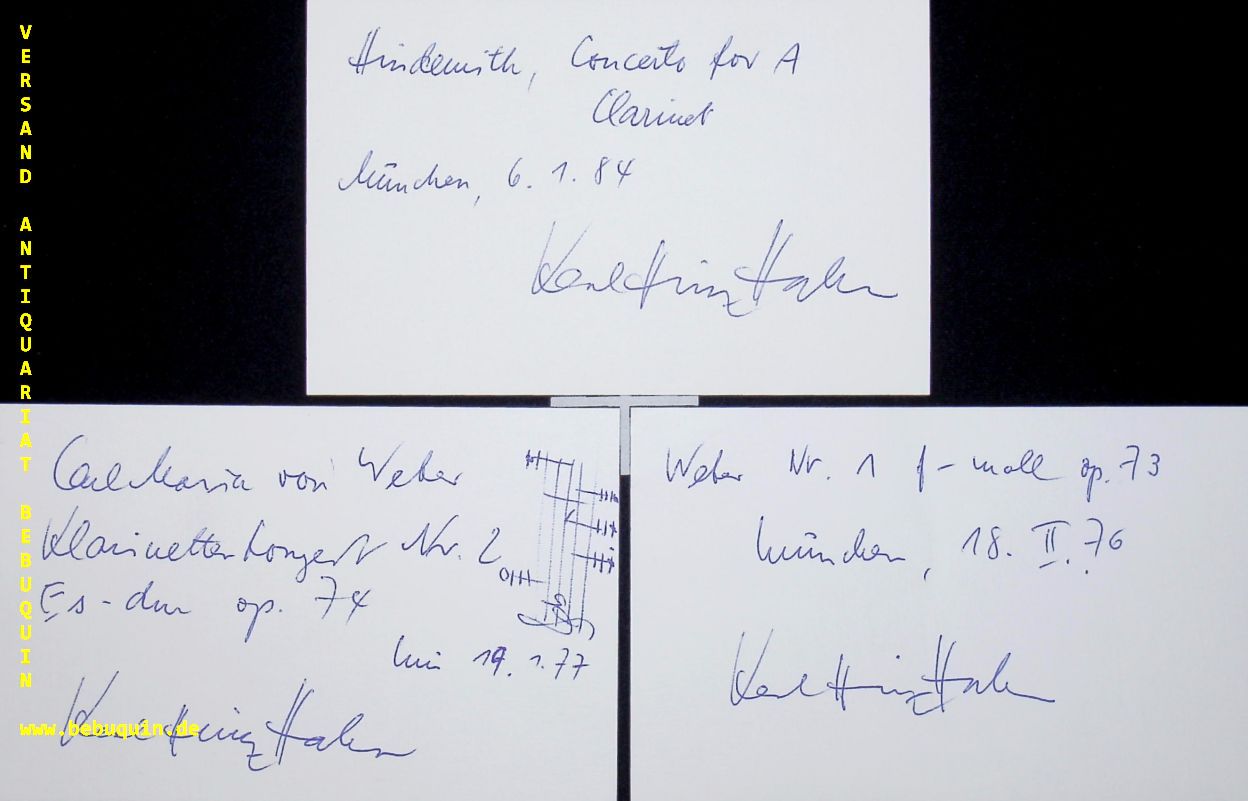 Hindemith, Concerto for A
Clarinet
München, 6. 1. 84
Karl Heinz Hahn
Carl Maria von Weber
Klarinettenkonzert Nr. 2
Es-dur op. 74
Mü 19. 1. 77
Karl Heinz Hahn
Weber Nr. 1 f-moll op. 73
München, 18. II. 76
Karl Heinz Hahn
VERSAND ANTIQUARIAT BEBUQUIN
www.bebuquin.de